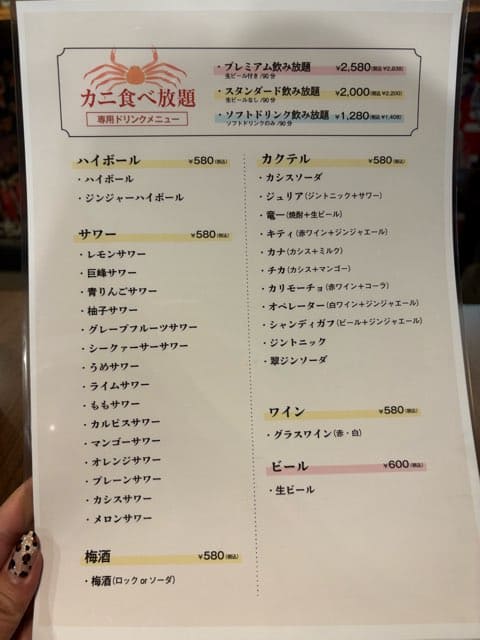 カニ食べ放題
専用ドリンクメニュー
・プレミアム飲み放題 ¥2,580(税込¥2,838)
生ビール付き/90分
・スタンダード飲み放題 ¥2,000(税込¥2,200)
生ビールなし/90分
・ソフトドリンク飲み放題 ¥1,280(税込¥1,408)
ソフトドリンクのみ/90分
ハイボール ¥580(税込)
・ハイボール
・ジンジャーハイボール
サワー ¥580(税込)
・レモンサワー
・巨峰サワー
・青りんごサワー
・柚子サワー
・グレープフルーツサワー
・シークァーサーサワー
・うめサワー
・ライムサワー
・ももサワー
・カルピスサワー
・マンゴーサワー
・オレンジサワー
・プレーンサワー
・カシスサワー
・メロンサワー
梅酒 ¥580(税込)
・梅酒(ロック or ソーダ)
カクテル ¥580(税込)
・カシスソーダ
・ジュリア(ジントニック+サワー)
・竜一(焼酎+生ビール)
・キティ(赤ワイン+ジンジャエール)
・カナ(カシス+ミルク)
・チカ(カシス+マンゴー)
・カリモーチョ(赤ワイン+コーラ)
・オペレーター(白ワイン+ジンジャエール)
・シャンディガフ(ビール+ジンジャエール)
・ジントニック
・翠ジンソーダ
ワイン ¥580(税込)
・グラスワイン(赤・白)
ビール ¥600(税込)
・生ビール